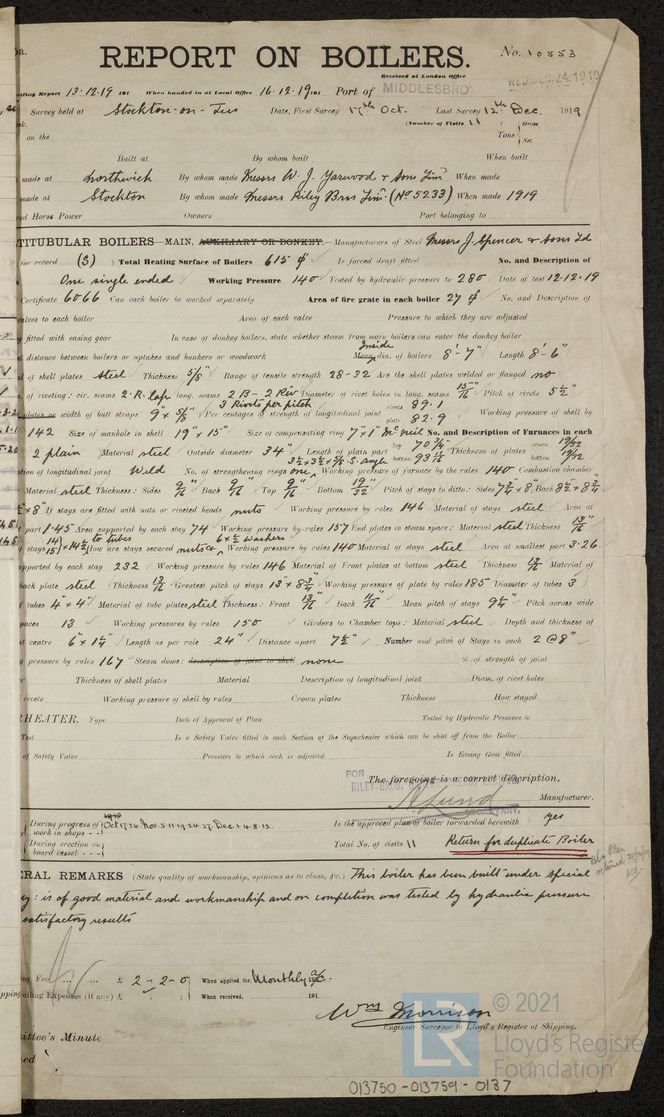 REPORT ON BOILERS.
No. 10553
Received at London Office
WED. DEC. 24. 1919
Writing Report 13.12.19 191 When handed in at Local Office 16.12.19 191 Port of MIDDLESBRO'
Survey held at Stockton-on-Tees Date, First Survey 17th Oct. Last Survey 12th Dec. 1919
(Number of Visits 11
on the Tons Gross Net
Built at By whom built When built
made at Northwich By whom made Messrs W. J. Yarwood & Sons Lim When made
made at Stockton By whom made Messrs Riley Bros Lim. (No 5233) When made 1919
Horse Power Owners Port belonging to
TITUBULAR BOILERS—MAIN, AUXILIARY OR DONKEY.—Manufacturers of Steel Messrs J. Spencer & Sons Ld
for record (S) ) Total Heating Surface of Boilers 615 Is forced draft fitted No. and Description of
One single ended Working Pressure 140 Tested by hydraulic pressure to 280 Date of test 12.12.19
Certificate 6066 Can each boiler be worked separately Area of fire grate in each boiler 27 No. and Description of
valves to each boiler Area of each valve Pressure to which they are adjusted
fitted with easing gear In case of donkey boilers, state whether steam from main boilers can enter the donkey boiler
distance between boilers or uptakes and bunkers or woodwork Inside dia. of boilers 8'-7" Length 8'-6"
of shell plates steel Thickness 5/8" Range of tensile strength 28-32 Are the shell plates welded or flanged no
of riveting: cir. seams 2.R.Lap long. seams 2 B-2 Riv Diameter of rivet holes in long. seams 15/16" Pitch of rivets 5½"
3 Rivets per pitch
plates or width of butt straps 9"x5/8" Per centages of strength of longitudinal joint rivets 89.1 plate 82.9 Working pressure of shell by
142 Size of manhole in shell 19"x15" Size of compensating ring 7"x1" McNeil No. and Description of Furnaces in each
2 plain Material steel Outside diameter 34" Length of plain part top 70¾" bottom 93 Thickness of plates crown 19/32 bottom 19/32
of longitudinal joint Weld No. of strengthening rings one Working pressure of furnace by the rules 140 Combustion chamber
Material steel Thickness: Sides 9/16" Back 9/16" Top 9/16" Bottom 19/32 Pitch of stays to ditto: Sides 7¾x8" Back 8½x8¾
x8" If stays are fitted with nuts or riveted heads nuts Working pressure by rules 146 Material of stays steel Area at
part 1.45 Area supported by each stay 74 Working pressure by rules 157 End plates in steam space: Material steel Thickness 13/16"
stays How are stays secured nuts & 6x½ washers Working pressure by rules 140 Material of stays steel Area at smallest part 3.26
supported by each stay 232 Working pressure by rules 146 Material of Front plates at bottom steel Thickness 13/16 Material of
back plate steel Thickness 13/16 Greatest pitch of stays 13"x8¾" Working pressure of plate by rules 185 Diameter of tubes 3
tubes 4"x4" Material of tube plates steel Thickness: Front 13/16" Back 11/16" Mean pitch of stays 9¼" Pitch across wide
spaces 13 Working pressures by rules 150 Girders to Chamber tops: Material steel Depth and thickness of
centre 6"x1¼" Length as per rule 24" Distance apart 7½" Number and pitch of Stays in each 2 @ 8"
pressure by rules 167 Steam dome: description of joint to shell none % of strength of joint
Thickness of shell plates Material Description of longitudinal joint Diam. of rivet holes
rivets Working pressure of shell by rules Crown plates Thickness How stayed
HEATER. Type Date of Approval of Plan Tested by Hydraulic Pressure to
Test Is a Safety Valve fitted to each Section of the Superheater which can be shut off from the Boiler
of Safety Valve Pressure to which each is adjusted Is Easing Gear fitted
FOR
The foregoing is a correct description,
A Lund Manufacturer.
SECRETARY.
During progress of work in shops - - 1919 Oct 17.24. Nov. 5.11.19.24.27. Dec. 1.4.8.12.
Is the approved plan of boiler forwarded herewith yes
During erection on board vessel - - -
Total No. of visits 11
Return for duplicate Boiler
RAL REMARKS (State quality of workmanship, opinions as to class, &c.) This boiler has been built under special
is of good material and workmanship and on completion was tested by hydraulic pressure
satisfactory results
Fee ... ... £ 2-2-0 When applied for, Monthly a/c.
Expenses (if any) £ : : When received, 191
Wm Morrison
Engineer Surveyor to Lloyd's Register of Shipping.
ittee's Minute
LR © 2021
Lloyd's Registe
Foundation
013750-013759-0137